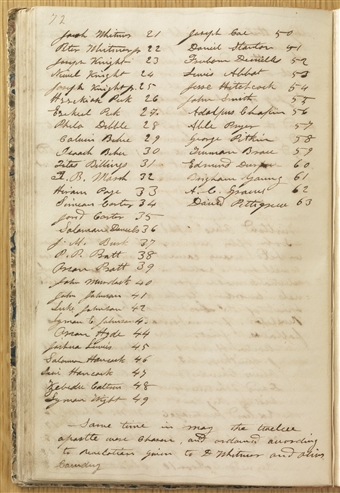 72
Jacob Whitmer 21
Peter Whitmer jr. 22
Joseph Knight 23
Newel Knight 24
Joseph Knight jr. 25
Hezekiah Peck 26
Ezekiel Peck 27
Philo Dibble 28
Calvin Bebee 29
Isaach Bebee 30
Titus Billings 31
T. B. Marsh 32
Hiram Page 33
Simeon Carter 34
Jared Carter 35
Salamon Daniels 36
J. M. Burk 37
P. P. Pratt 38
Orson Pratt 39
John Murdock 40
John Johnson 41
Luke Johnson 42
Lyman E Johnson 4
Orson Hyde 44
Joshua Lewis 45
Salomon Hancock 46
Levi Hancock 47
Zebedee Coltrin 48
Lyman Wight 49
Joseph Coe 50
Daniel Stanton 51
Freeborn Demille 52
Lewis Abbot 53
Jesse Hitchcock 54
John Smith 55
Adolphus Chapin 56
57
George Pitkin 58
Truman Brace 59
Edmund Durfee 60
Brigham Young 61
A. C. Graves 62
David Pettigrew 63
Some time in may the twelve
apostle were chosen, and ordained according
to revelation given to D Whitmer and Oliver
Cowdry